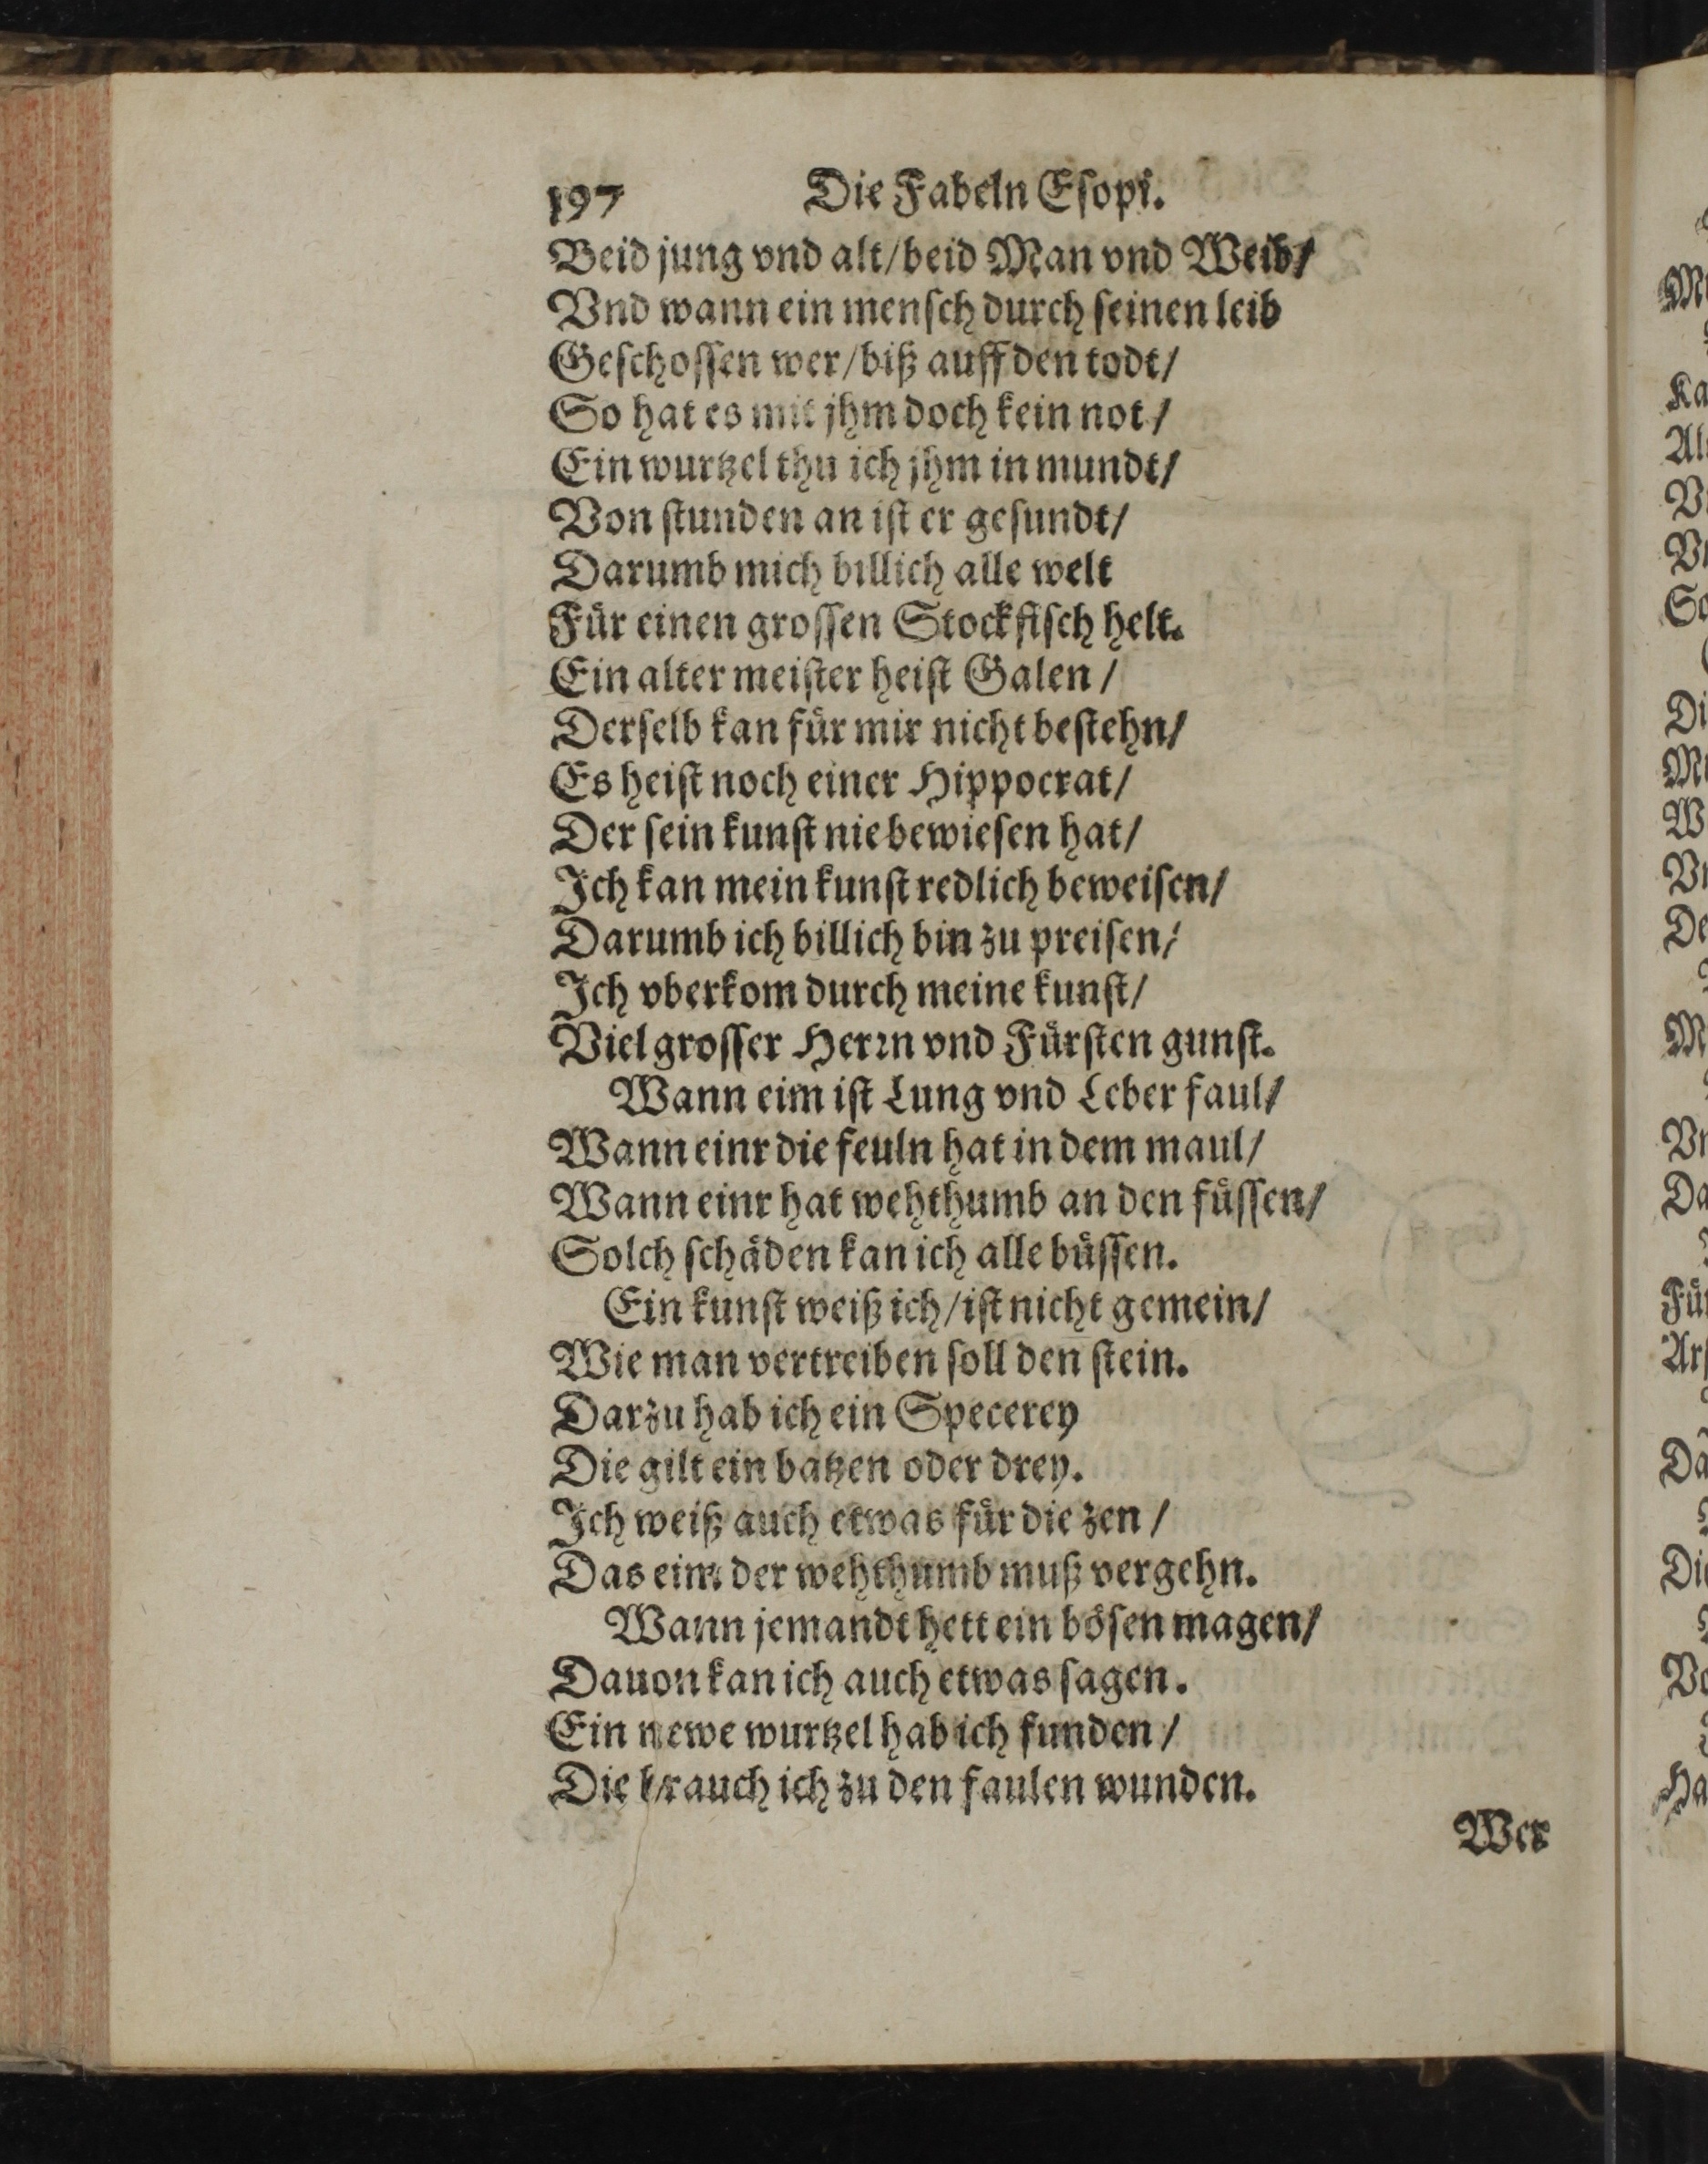 197 Die Fabeln Eſopi.
Beid jung vnd alt/ beid Man vnd Weib/
Vnd wann ein menſch durch ſeinen leib
Geſchoſſen wer/ biß auff den todt/
So hat es mit jhm doch kein not/
Ein wurtzel thu ich jhm in mundt/
Von ſtunden an iſt er geſundt/
Darumb mich billich alle welt
Für einen groſſen Stockfiſch helt.
Ein alter meiſter heiſt Galen/
Derſelb kan für mir nicht beſtehn/
Es heiſt noch einer Hippocrat/
Der ſein kunſt nie bewieſen hat/
Ich kan mein kunſt redlich beweiſen/
Darumb ich billich bin zu preiſen/
Ich vberkom durch meine kunſt/
Viel groſſer Herꝛn vnd Fürſten gunſt.
Wann eim iſt Lung vnd Leber faul/
Wann einr die feuln hat in dem maul/
Wann einr hat wehthumb an den füſſen/
Solch ſchäden kan ich alle büſſen.
Ein kunſt weiß ich/ iſt nicht gemein/
Wie man vertreiben ſoll den ſtein.
Darzu hab ich ein Specerey
Die gilt ein batzen oder drey.
Ich weiß auch etwas für die zen/
Das eim der wehthumb muß vergehn.
Wann jemandt hett ein böſen magen/
Dauon kan ich auch etwas ſagen.
Ein newe wurtzel hab ich funden/
Die brauch ich zu den faulen wunden.
Wer